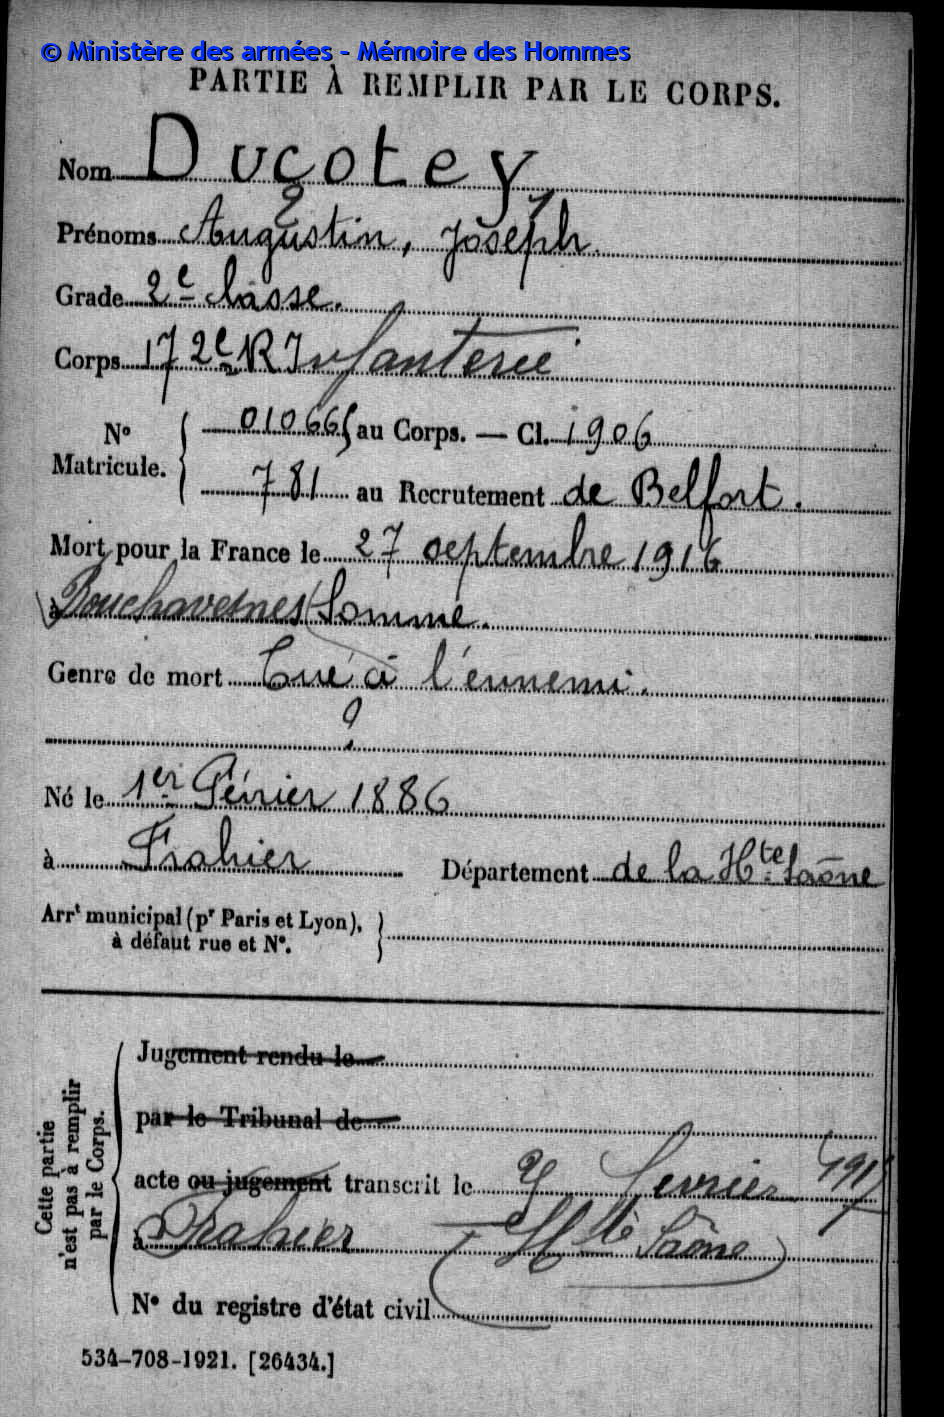 © Ministère des armées - Mémoire des Hommes
PARTIE À REMPLIR PAR LE CORPS.
Nom Ducotey
Prénoms Augustin, Joseph
Grade 2e classe.
Corps 172e R Infanterie
No Matricule. { 01066 au Corps. — Cl. 1906
781 au Recrutement de Belfort.
Mort pour la France le 27 septembre 1916
à Bouchavesnes (Somme.
Genre de mort Tué à l'ennemi.
Né le 1er Février 1886
à Frahier Département de la Hte Saône
Arrt municipal (pr Paris et Lyon),
à défaut rue et No.
Cette partie
n'est pas à remplir
par le Corps.
Jugement rendu le
par le Tribunal de
acte ou jugement transcrit le février 1917
à Frahier (Hte Saône)
No du registre d'état civil
534-708-1921. [26434.]